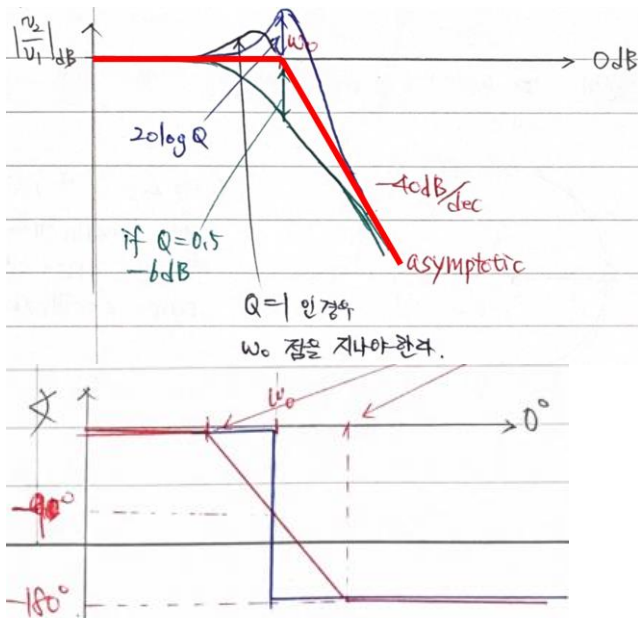 |v₂/v₁|dB
ω₀
0dB
20log Q
-40dB/dec
if Q=0.5
-6dB
asymptotic
Q=1 인경우
ω₀ 점을 지나야한다.
∢
ω₀
0°
-90°
-180°